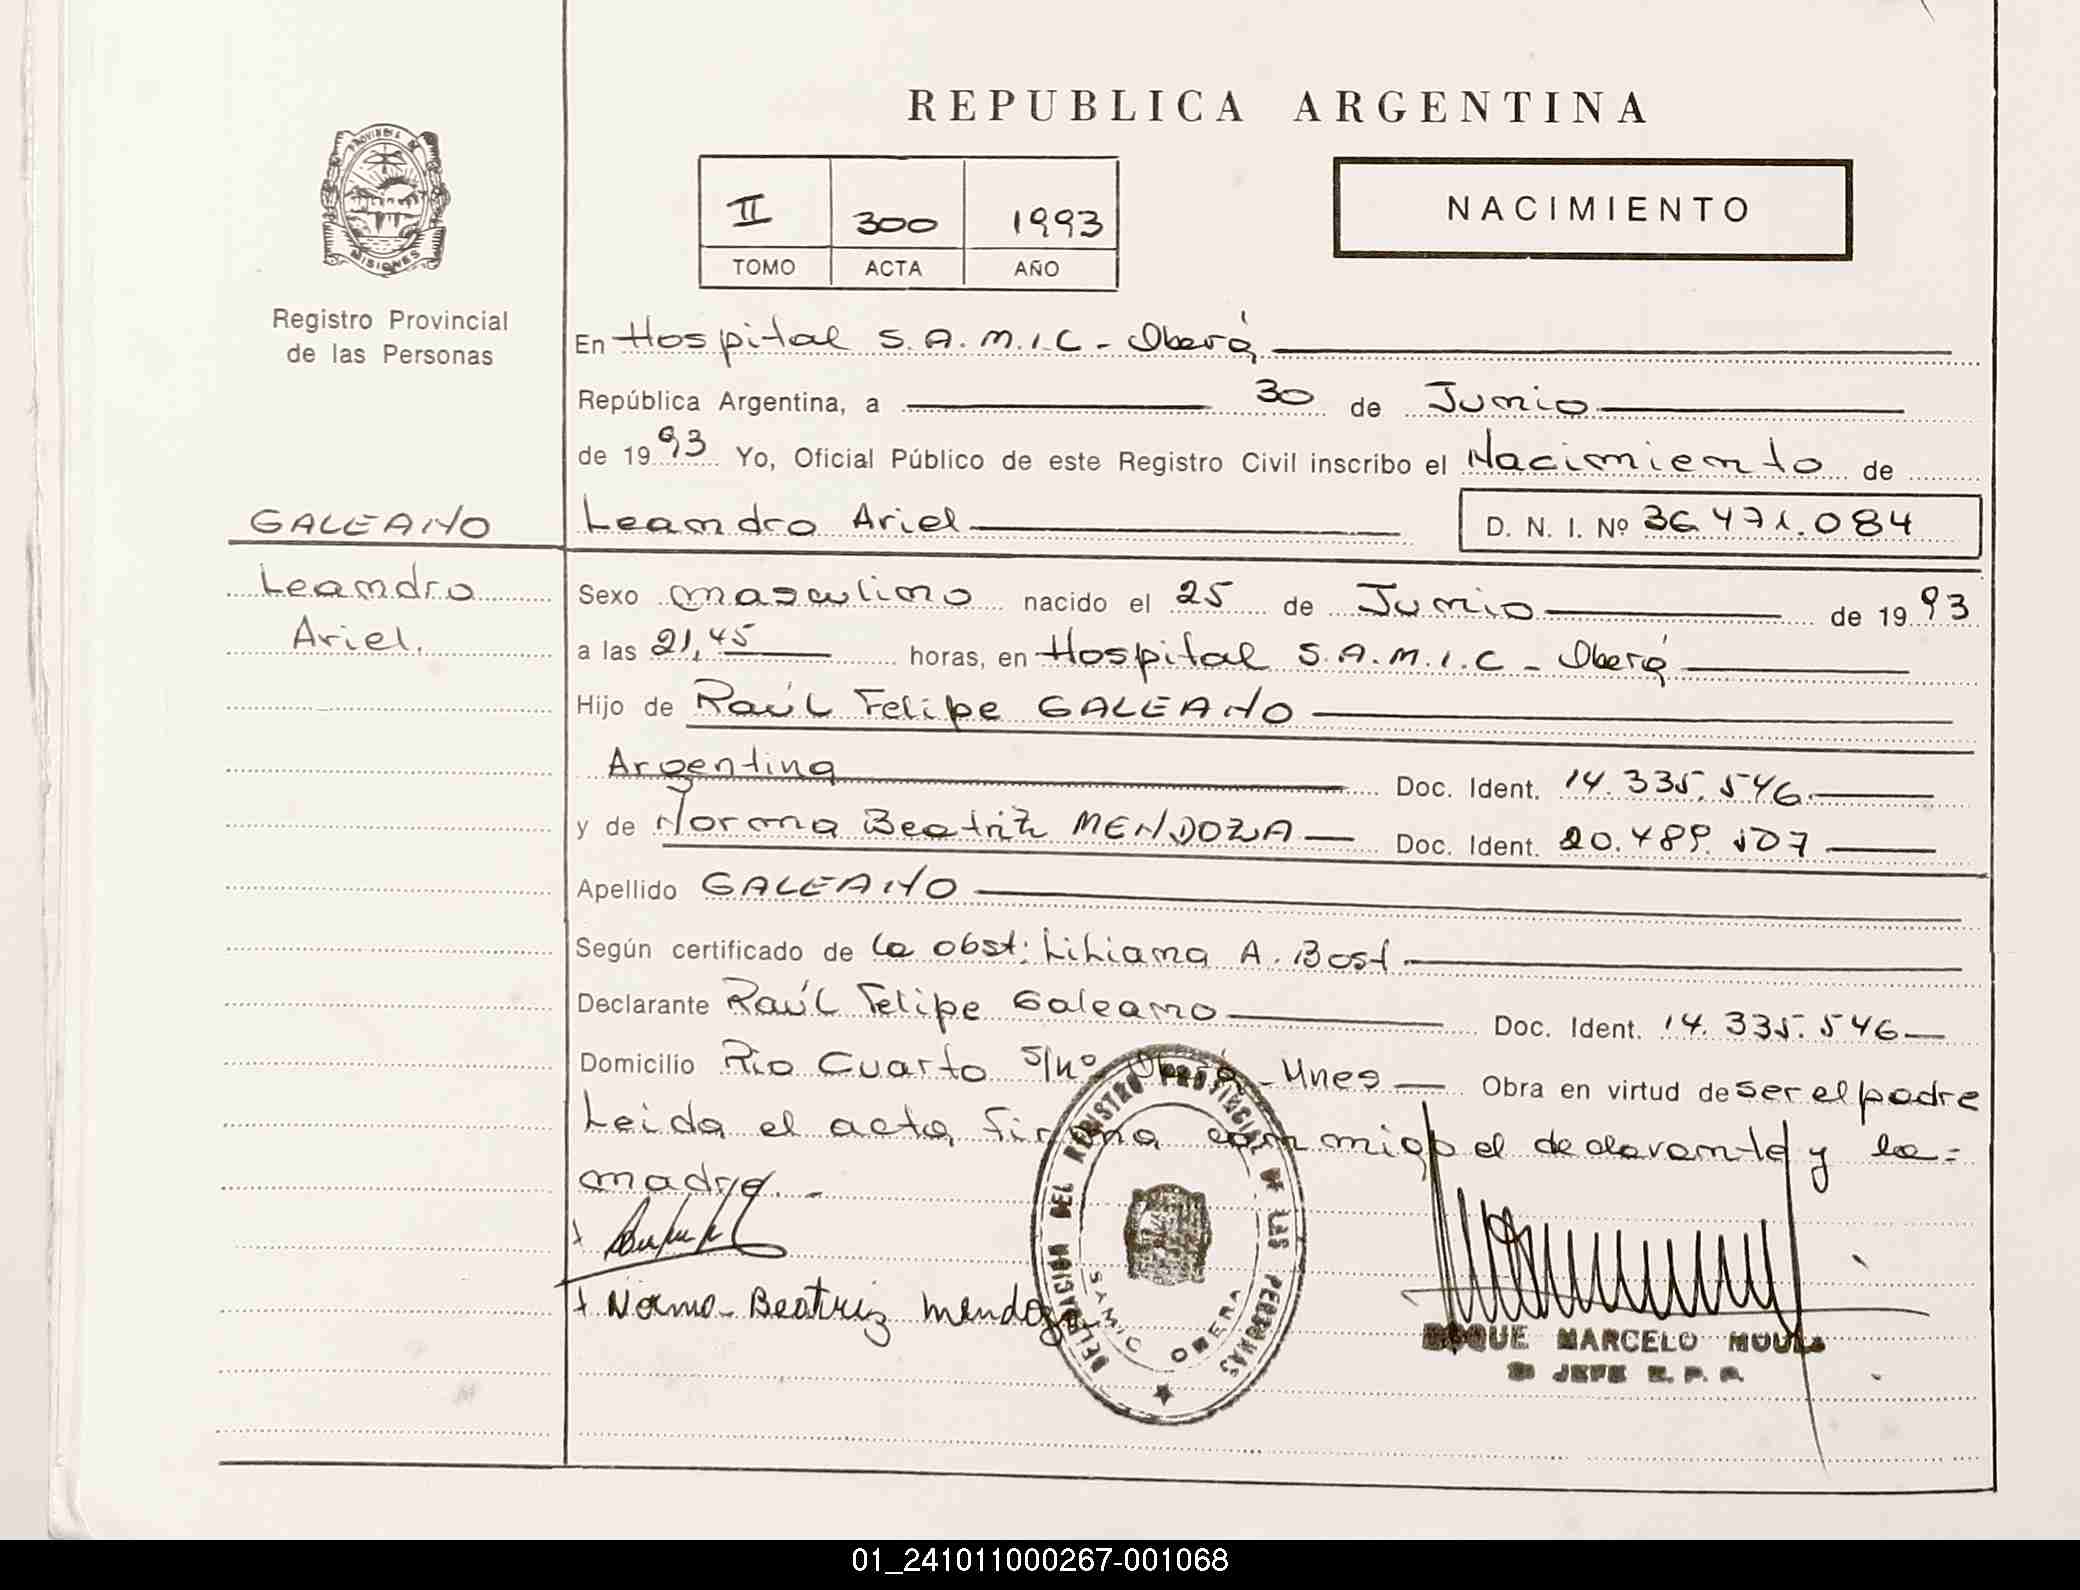 REPUBLICA ARGENTINA
PROVINCIA DE MISIONES
II 300 1993
TOMO ACTA AÑO
NACIMIENTO
Registro Provincial
de las Personas
En Hospital S.A.M.I.C - Oberá
República Argentina, a 30 de Junio
de 1993 Yo, Oficial Público de este Registro Civil inscribo el Nacimiento de
GALEANO
Leandro Ariel
D. N. I. Nº 36.471.084
Leandro
Ariel.
Sexo masculino nacido el 25 de Junio de 1993
a las 21,45 horas, en Hospital S.A.M.I.C - Oberá
Hijo de Raúl Felipe GALEANO
Argentina Doc. Ident. 14.335.546
y de Norma Beatriz MENDOZA Doc. Ident. 20.489.107
Apellido GALEANO
Según certificado de la obst: Liliana A. Bost
Declarante Raúl Felipe Galeano Doc. Ident. 14.335.546
Domicilio Río Cuarto S/nº Oberá - Mnes Obra en virtud de ser el padre
Leida el acta, firma conmigo el declarante y la=
madre.-
Norma Beatriz Mendoza
DELEGACION DEL REGISTRO PROVINCIAL DE LAS PERSONAS
SAMIC OBERA
ROQUE MARCELO
JEFE R. P. P.
01_241011000267-001068